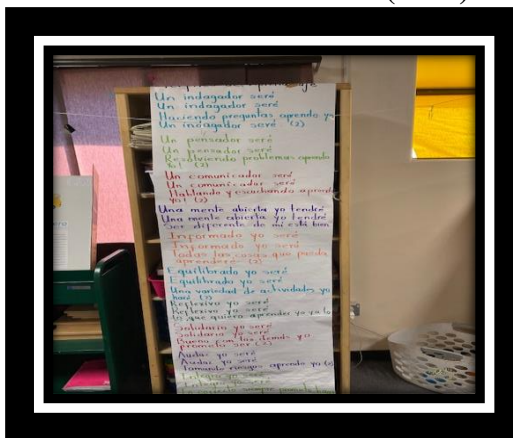 Un indagador seré
Un indagador seré
Haciendo preguntas aprendo yo
Un indagador seré (2)
Un pensador seré
Un pensador seré
Resolviendo problemas aprendo
yo! (2)
Un comunicador seré
Un comunicador seré
Hablando y escuchando aprendo
yo! (2)
Una mente abierta yo tendré
Una mente abierta yo tendré
Ser diferente de mi está bien
Informado yo seré
Informado yo seré
Todas las cosas que pueda
aprenderé (2)
Equilibrado yo seré
Equilibrado yo seré
Una variedad de actividades yo
haré (2)
Reflexivo yo seré
Reflexivo yo seré
lo que quiero aprender yo ya lo
Solidario yo seré
Solidario yo seré
Bueno con los demás yo
prometo ser (2)
Audaz yo seré
Audaz yo seré
Tomando riesgos aprendo yo (2)
Integro yo seré
Integro yo seré